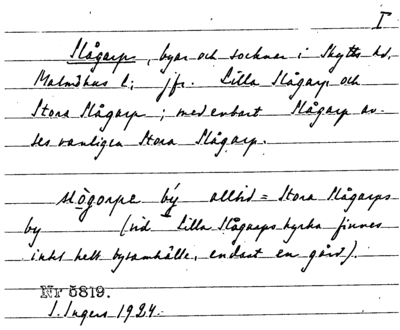 I
Slågarp, byar och socknar i Skytts hd,
Malmöhus l; jfr. Lilla Slågarp och
Stora Slågarp; med enbart Slågarp av-
ses vanligen Stora Slågarp.
slǫgarpe bý alltid = Stora Slågarps
by (vid Lilla Slågarps kyrka finnes
intet helt bysamhälle, endast en gård).
Nr 5819.
I. Ingers 1924.